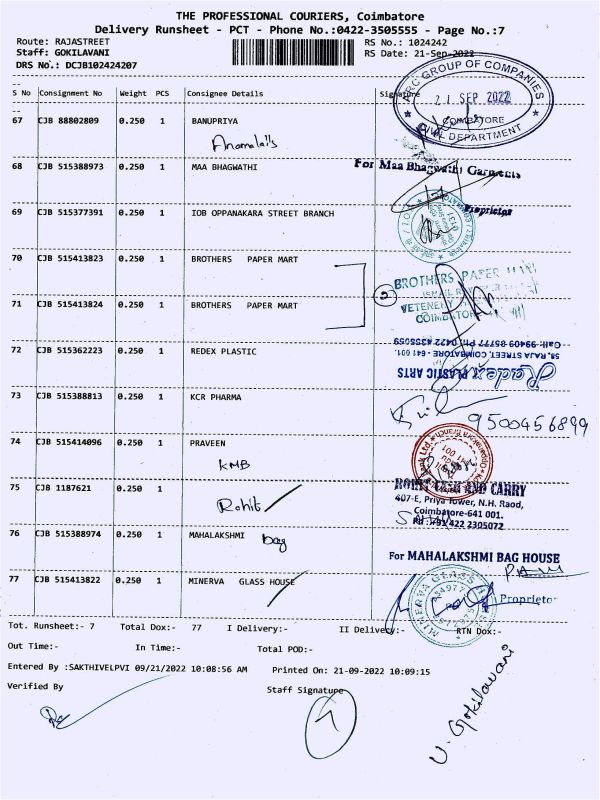 THE PROFESSIONAL COURIERS, Coimbatore
Delivery Runsheet - PCT - Phone No.:0422-3505555 - Page No.:7
Route: RAJASTREET RS No.: 1024242
Staff: GOKILAVANI RS Date: 21-Sep-2022
DRS No.: DCJB102424207
ARC GROUP OF COMPANIES
S No Consignment No Weight PCS Consignee Details Signature
21 SEP 2022
COIMBATORE
CIVIL DEPARTMENT
67 CJB 88802809 0.250 1 BANUPRIYA
68 CJB 515388973 0.250 1 MAA BHAGWATHI
For Maa Bhagwathi Garments
Proprietor
69 CJB 515377391 0.250 1 IOB OPPANAKARA STREET BRANCH
70 CJB 515413823 0.250 1 BROTHERS PAPER MART
BROTHERS PAPER MART
2
71 CJB 515413824 0.250 1 BROTHERS PAPER MART
COIMBATORE
72 CJB 515362223 0.250 1 REDEX PLASTIC
58, RAJA STREET, COIMBATORE - 641 001.
PLASTIC ARTS
73 CJB 515388813 0.250 1 KCR PHARMA
9500456899
74 CJB 515414096 0.250 1 PRAVEEN
KMB
75 CJB 1187621 0.250 1
Rohit
CASH AND CARRY
407-E, Priya Tower, N.H. Raod,
Coimbatore-641 001.
PH :+91 422 2305072
76 CJB 515388974 0.250 1 MAHALAKSHMI
bag
For MAHALAKSHMI BAG HOUSE
77 CJB 515413822 0.250 1 MINERVA GLASS HOUSE
MINERVA GLASS
Proprietor
Tot. Runsheet:- 7 Total Dox:- 77 I Delivery:- II Delivery:- RTN Dox:-
Out Time:- In Time:- Total POD:-
Entered By :SAKTHIVELPVI 09/21/2022 10:08:56 AM Printed On: 21-09-2022 10:09:15
Verified By Staff Signature
7
V. Gokilavani